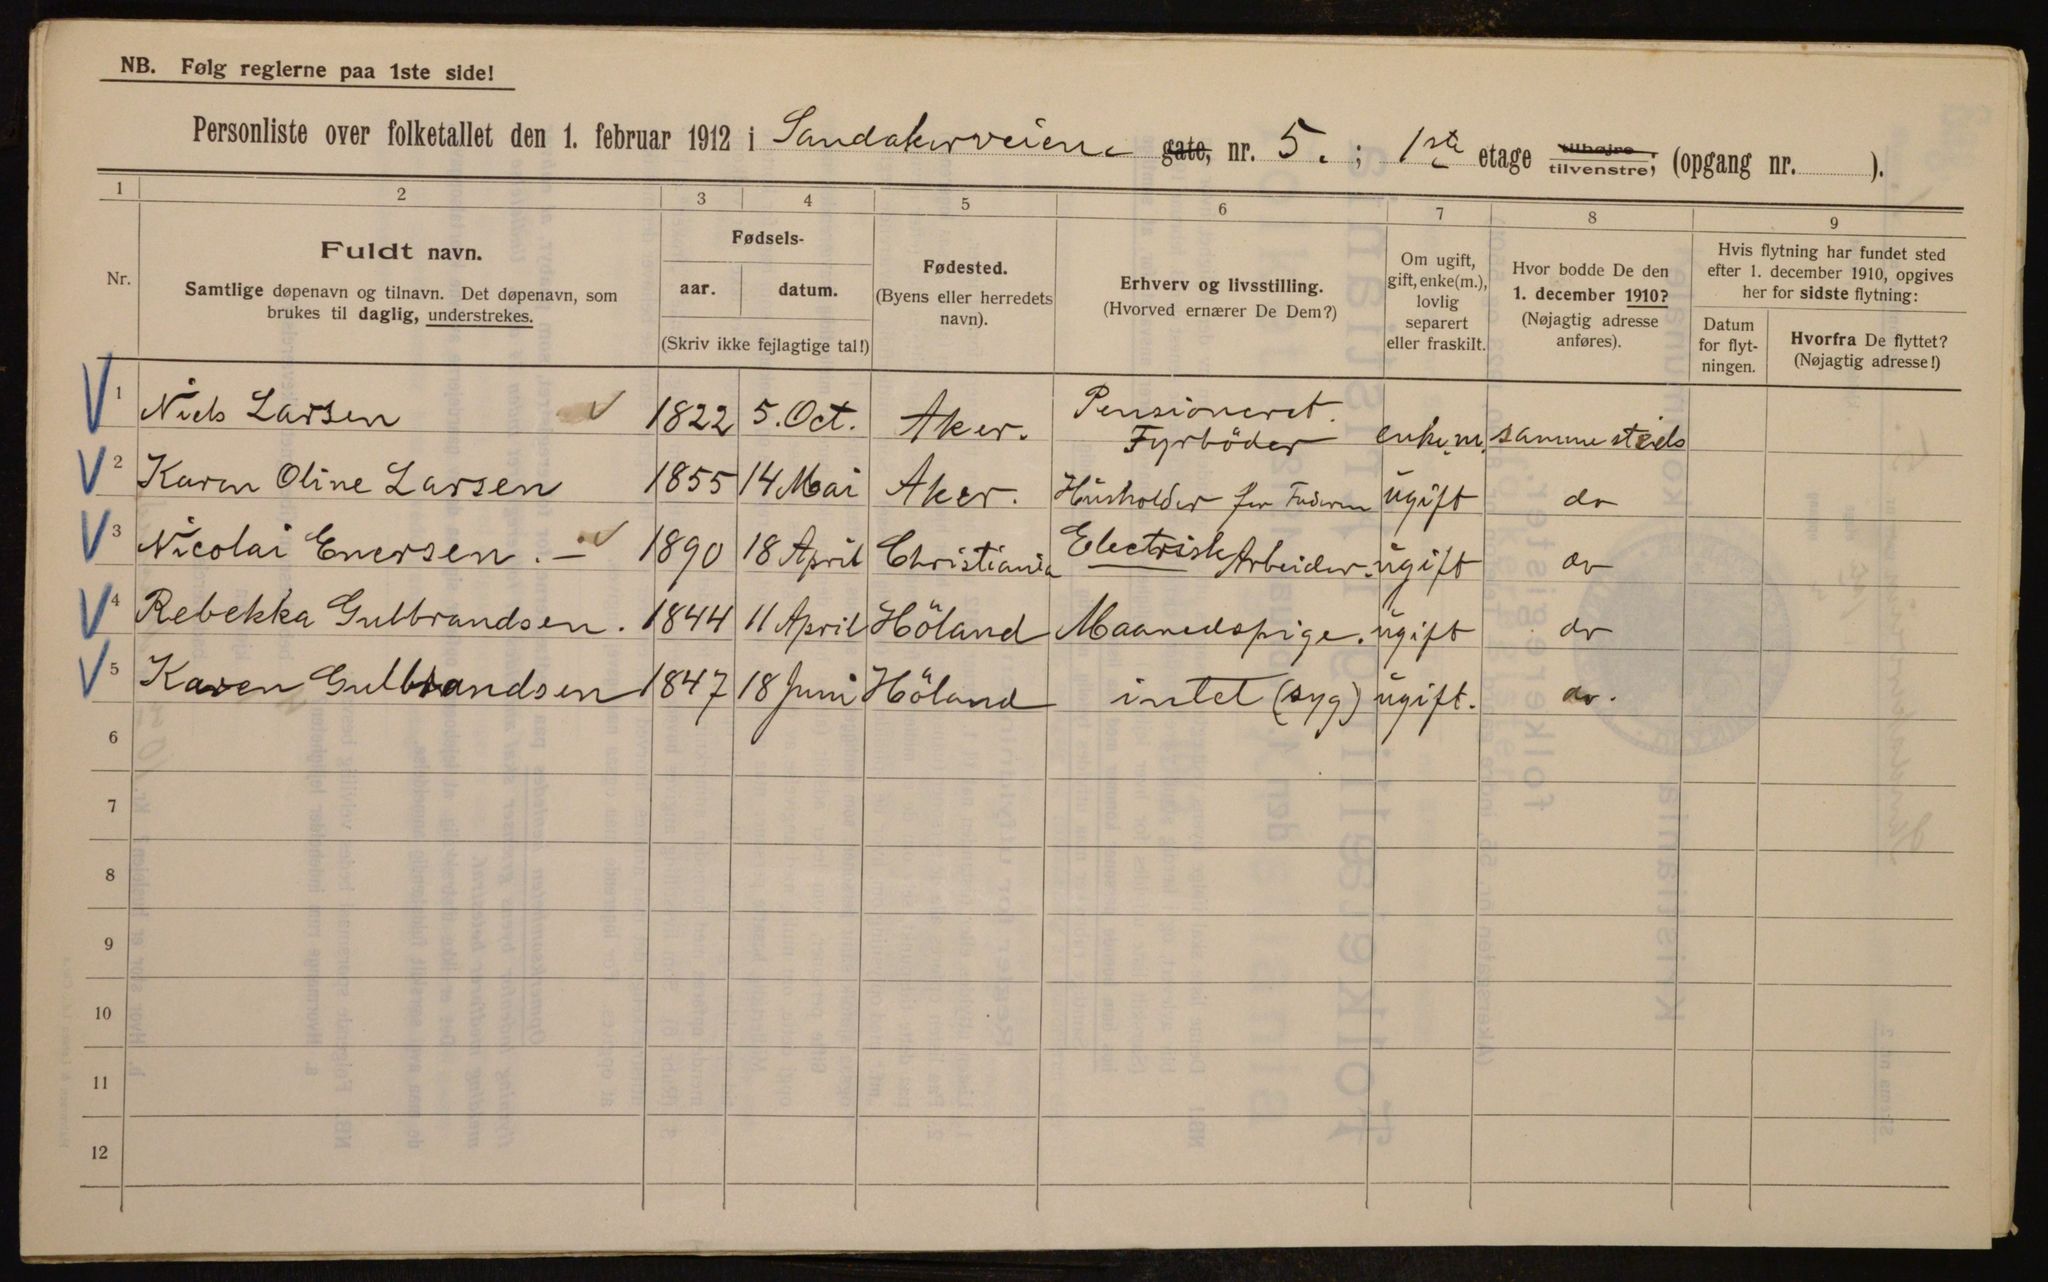 NB. Følg reglerne paa 1ste side!
Personliste over folketallet den 1. februar 1912 i Sandakerveien gate, nr. 5. ; 1ste etage tilhøjre tilvenstre; (opgang nr. ).
1 2 3 4 5 6 7 8 9
Nr.
Fuldt navn.
Samtlige døpenavn og tilnavn. Det døpenavn, som
brukes til daglig, understrekes.
Fødsels-
aar. datum.
(Skriv ikke fejlagtige tal!)
Fødested.
(Byens eller herredets
navn).
Erhverv og livsstilling.
(Hvorved ernærer De Dem?)
Om ugift,
gift, enke(m.),
lovlig
separert
eller fraskilt.
Hvor bodde De den
1. december 1910?
(Nøjagtig adresse
anføres).
Hvis flytning har fundet sted
efter 1. december 1910, opgives
her for sidste flytning:
Datum
for flyt-
ningen.
Hvorfra De flyttet?
(Nøjagtig adresse!)
1 Niels Larsen 1822 5. Oct. Aker. Pensioneret. Fyrböder enkem. sammesteds
2 Karen Oline Larsen 1855 14 Mai Aker. Husholder for Faderen ugift do
3 Nicolai Enersen. – 1890 18 April Christiania Electrisk Arbeider. ugift do
4 Rebekka Gulbrandsen. 1844 11 April Höland Maanedspige. ugift do
5 Karen Gulbrandsen 1847 18 Juni Höland intet (syg) ugift. do.
6
7
8
9
10
11
12